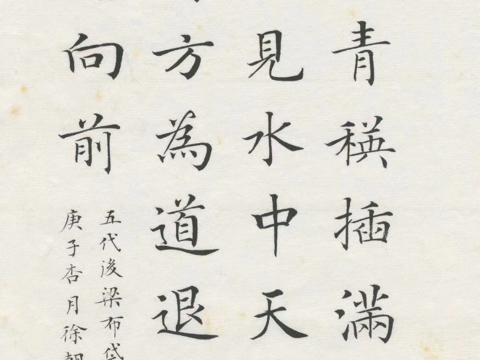 青秧插滿
見水中天
方為道退
向前
五代後梁布袋
庚子杏月徐